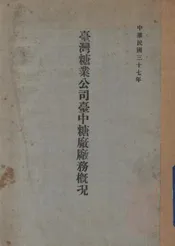 中華民國三十七年
臺灣糖業公司臺中糖廠廠務概況